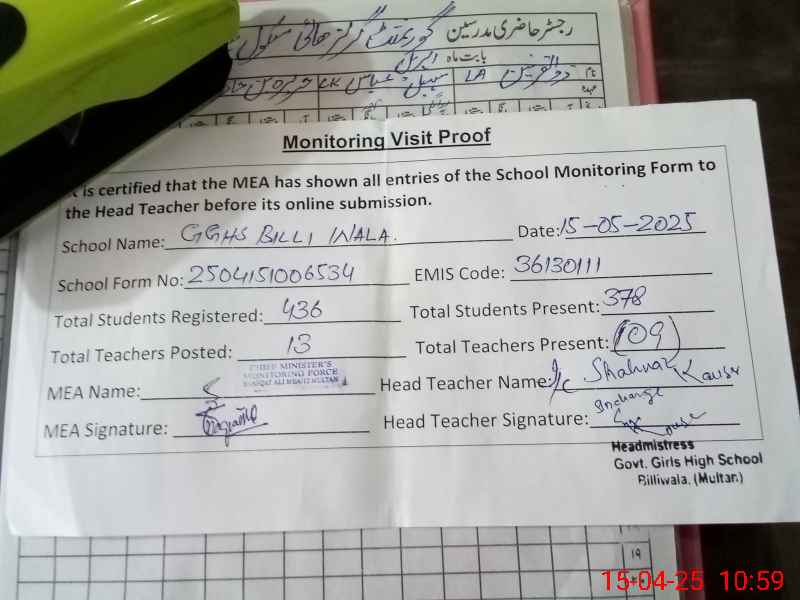 رجسٹر حاضری مدرسین گورنمنٹ گرلز ہائی سکول
بابت ماہ اپریل
نام
عہدہ
Monitoring Visit Proof
is certified that the MEA has shown all entries of the School Monitoring Form to
the Head Teacher before its online submission.
School Name: GGHS BILLI WALA. Date: 15-05-2025
School Form No: 2504151006534 EMIS Code: 36130111
Total Students Registered: 436 Total Students Present: 378
Total Teachers Posted: 13 Total Teachers Present: (09)
CHIEF MINISTER'S
MONITORING FORCE
MEA Name: Head Teacher Name: I/c Shahnaz Kausar
Incharge
MEA Signature: Head Teacher Signature:
Headmistress
Govt. Girls High School
Billiwala. (Multan)
19
15-04-25 10:59